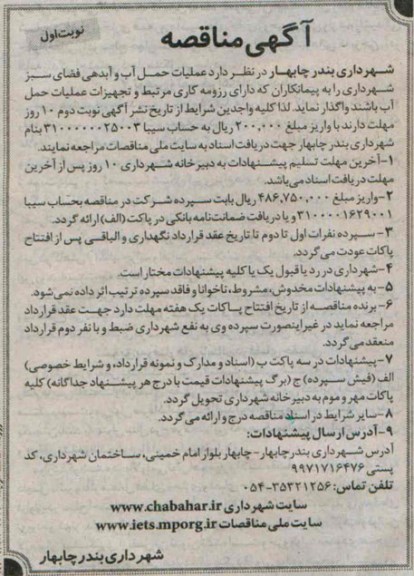 نوبت اول
آگهی مناقصه
شهرداری بندر چابهار در نظر دارد عملیات حمل آب و آبدهی فضای سبز
شهرداری را به پیمانکاران که دارای رزومه کاری مرتبط و تجهیزات عملیات حمل
آب باشند واگذار نماید. لذا کلیه واجدین شرایط از تاریخ نشر آگهی نوبت دوم ۱۰ روز
مهلت دارند با واریز مبلغ ۲۰۰,۰۰۰ ریال به حساب سیبا ۳۱۰۰۰۰۰۰۲۵۰۰۳ بنام
شهرداری بندر چابهار جهت دریافت اسناد به سایت ملی مناقصات مراجعه نمایند.
۱-آخرین مهلت تسلیم پیشنهادات به دبیرخانه شهرداری ۱۰ روز پس از آخرین
مهلت دریافت اسناد می‌باشد.
۲-واریز مبلغ ۴۸۶,۷۵۰,۰۰۰ ریال بابت سپرده شرکت در مناقصه بحساب سیبا
۳۱۰۰۰۰۱۶۲۹۰۰۱ و یا دریافت ضمانت‌نامه بانکی در پاکت (الف) ارائه گردد.
۳- سپرده نفرات اول تا دوم تا تاریخ عقد قرارداد نگهداری و الباقی پس از افتتاح
پاکات عودت می‌گردد.
۴-شهرداری در رد یا قبول یک یا کلیه پیشنهادات مختار است.
۵- به پیشنهادات مخدوش، مشروط، ناخوانا و فاقد سپرده ترتیب اثر داده نمی‌شود.
۶-برنده مناقصه از تاریخ افتتاح پاکات یک هفته مهلت دارد جهت عقد قرارداد
مراجعه نماید در غیراینصورت سپرده وی به نفع شهرداری ضبط و با نفر دوم قرارداد
منعقد می‌گردد.
۷-پیشنهادات در سه پاکت ب (اسناد و مدارک و نمونه قرارداد، و شرایط خصوصی)
الف (فیش سپرده) ج (برگ پیشنهادات قیمت با درج هر پیشنهاد جداگانه) کلیه
پاکات مهر و موم به دبیرخانه شهرداری تحویل گردد.
۸-سایر شرایط در اسناد مناقصه درج و ارائه می‌گردد.
۹-آدرس ارسال پیشنهادات:
آدرس شهرداری بندرچابهار- چابهار بلوار امام خمینی، ساختمان شهرداری، کد
پستی ۹۹۷۱۷۱۶۴۷۶
تلفن تماس: ۳۵۳۲۱۲۵۶-۰۵۴
سایت شهرداری www.chabahar.ir
سایت ملی مناقصات www.iets.mporg.ir
شهرداری بندر چابهار